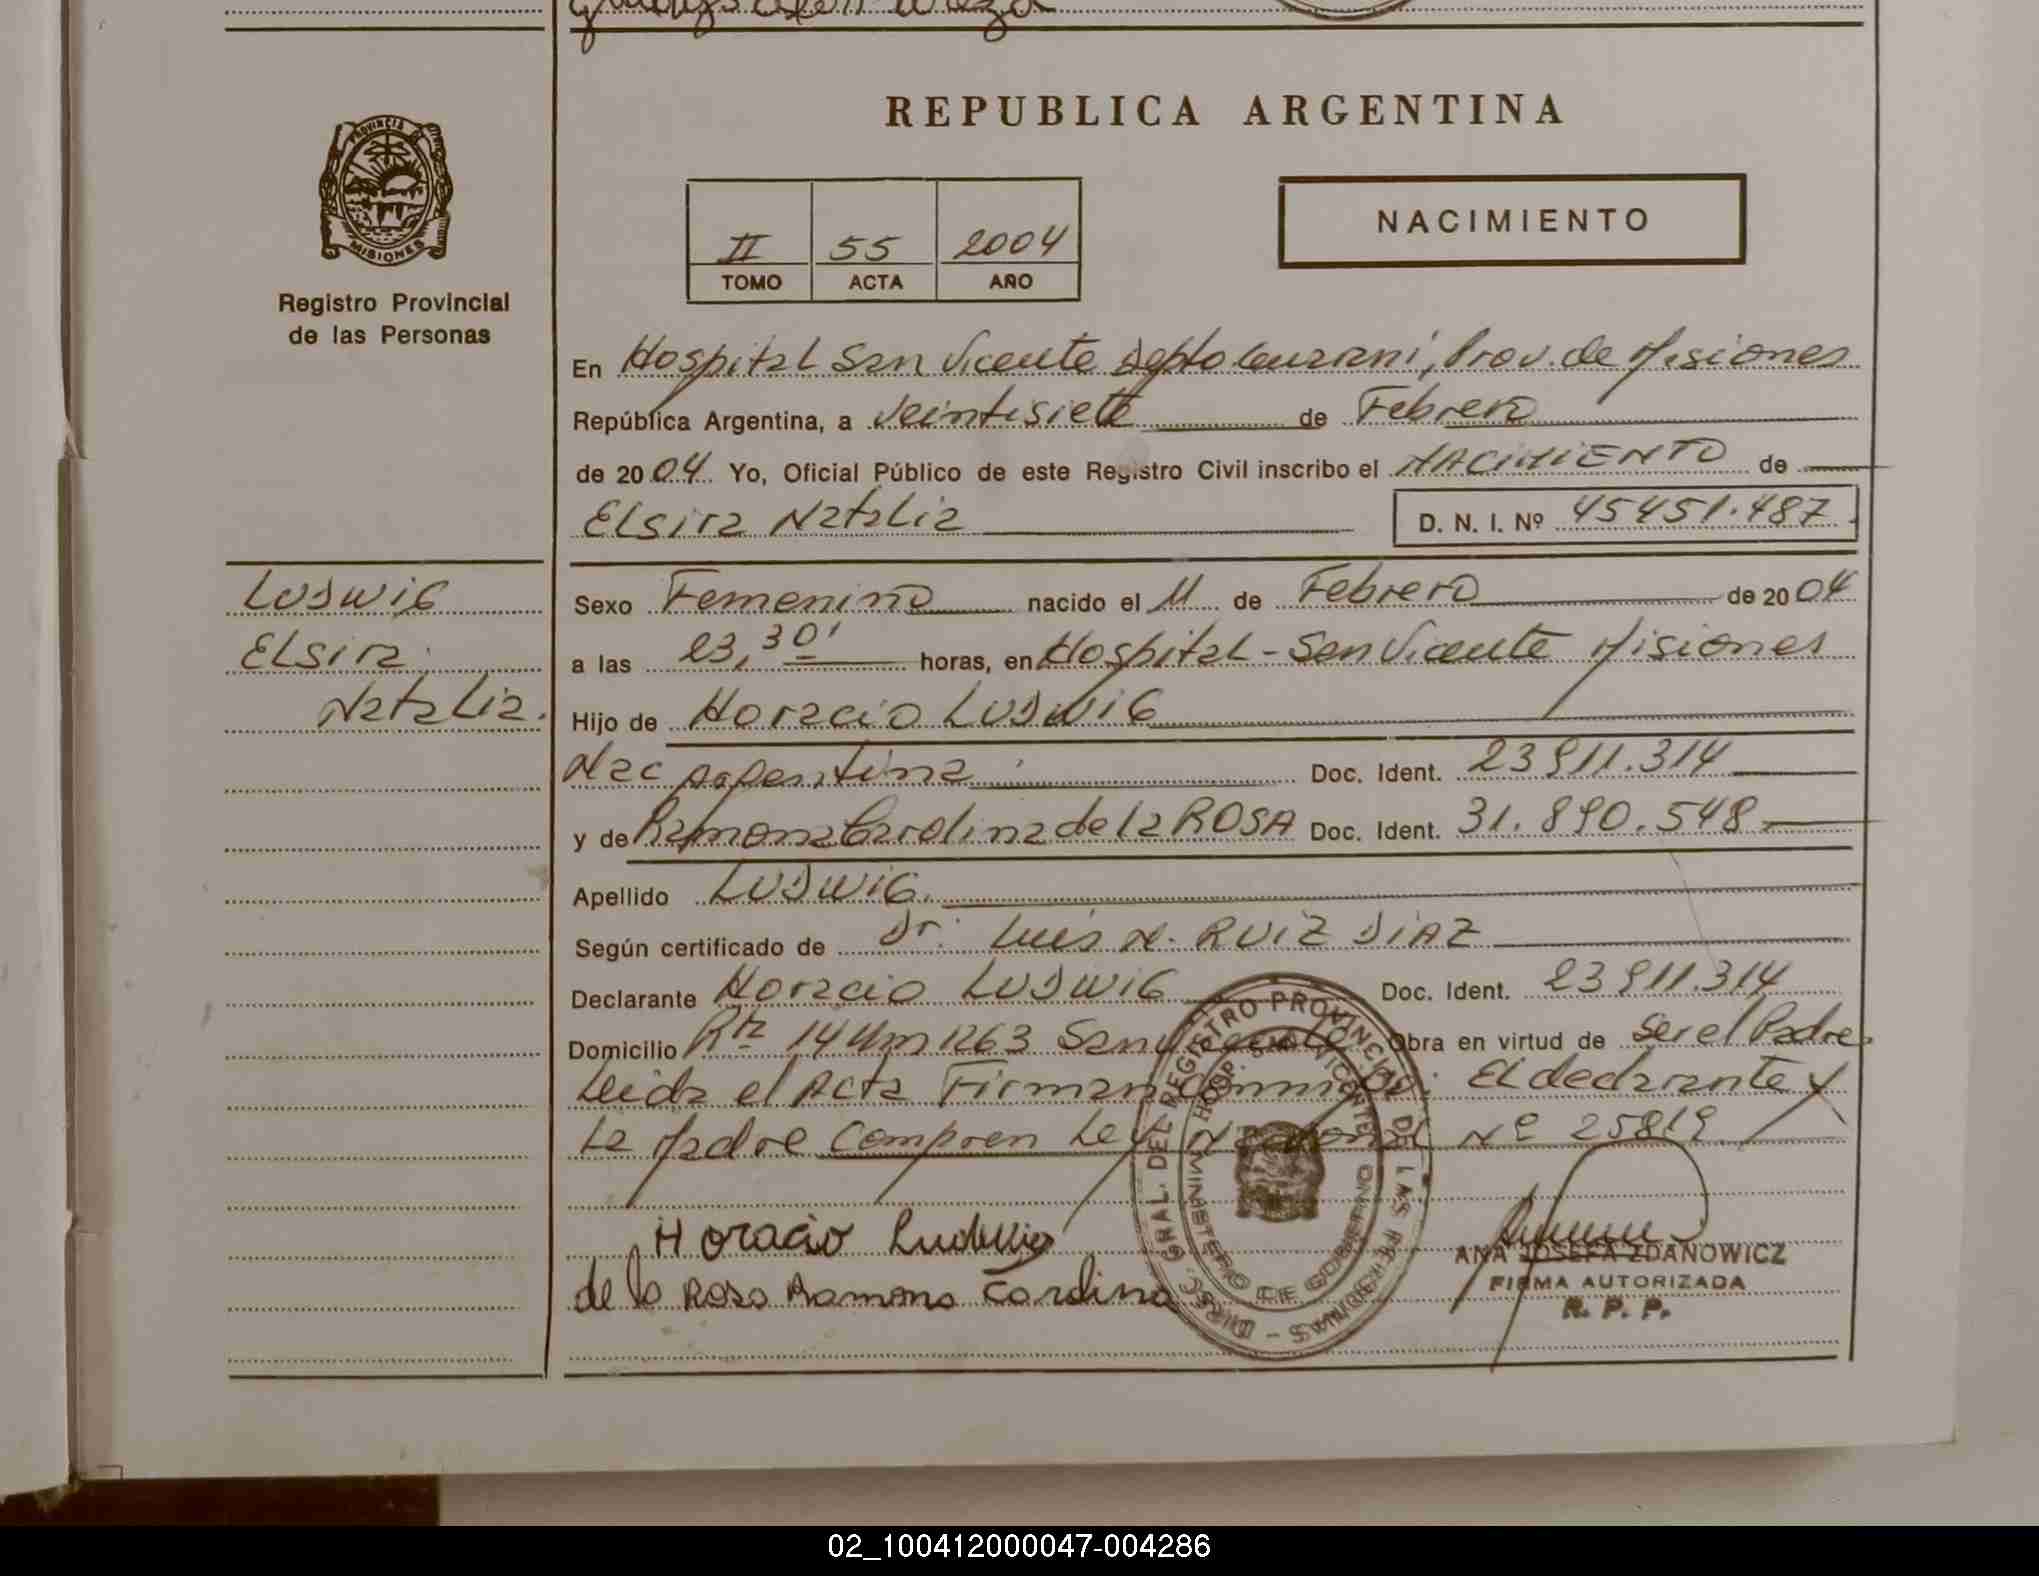 REPUBLICA ARGENTINA
PROVINCIA DE MISIONES
Registro Provincial
de las Personas
II 55 2004
TOMO ACTA AÑO
NACIMIENTO
En Hospital San Vicente Depto Guarani, Prov. de Misiones
República Argentina, a Veintisiete de Febrero
de 2004 Yo, Oficial Público de este Registro Civil inscribo el NACIMIENTO de
Elsira Natalia D. N. I. Nº 45451.487
LUDWIG
Elsira
Natalia.
Sexo Femenino nacido el 11 de Febrero de 2004
a las 23,30' horas, en Hospital - San Vicente Misiones
Hijo de Horacio LUDWIG
Nac Argentina Doc. Ident. 23911.314
y de Ramona Carolina de la ROSA Doc. Ident. 31.890.548
Apellido LUDWIG.
Según certificado de Dr. Luis N. RUIZ DIAZ
Declarante Horacio LUDWIG Doc. Ident. 23911.314
Domicilio Rta 14 Km 1263 San Vicente Obra en virtud de Ser el Padre.
Leida el Acta Firman conmigo: El declarante y
La Madre Compren Ley Nacional Nº 25819
Horacio Ludwig
de la Rosa Ramona Carolina
DIREC. GRAL. DEL REGISTRO PROVINCIAL DE LAS PERSONAS - MISIONES
HOSP. SAN VICENTE
MINISTERIO DE GOBIERNO
ANA JOSEFA ZDANOWICZ
FIRMA AUTORIZADA
R. P. P.
02_100412000047-004286